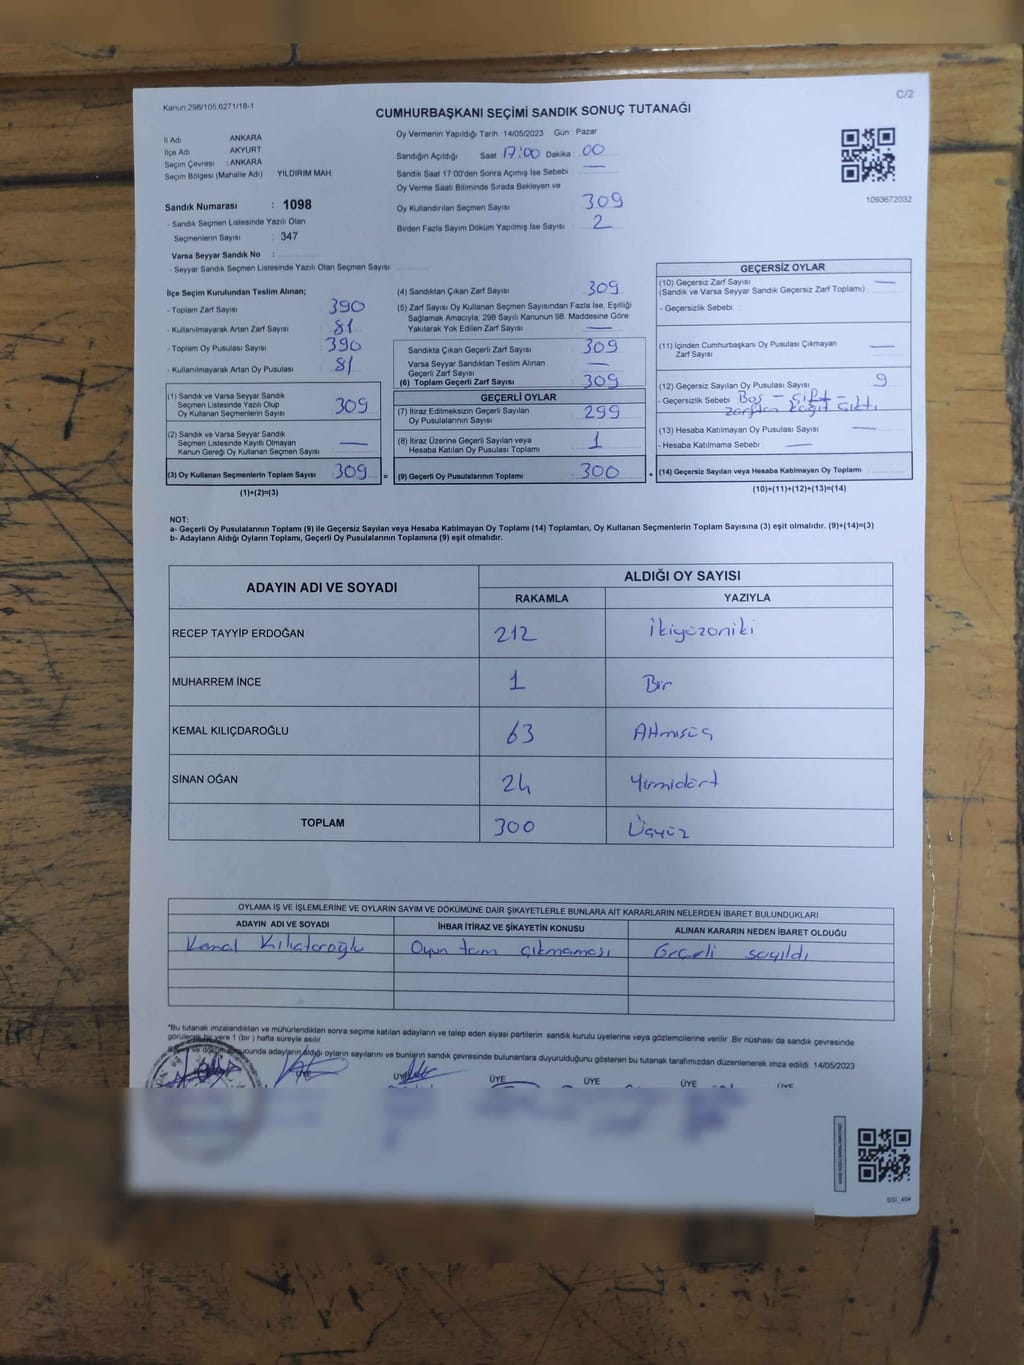 C/2
Kanun:298/105,6271/18-1
CUMHURBAŞKANI SEÇİMİ SANDIK SONUÇ TUTANAĞI
İl Adı ANKARA
İlçe Adı AKYURT
Seçim Çevresi : ANKARA
Seçim Bölgesi (Mahalle Adı) : YILDIRIM MAH.
Sandık Numarası : 1098
- Sandık Seçmen Listesinde Yazılı Olan
Seçmenlerin Sayısı : 347
Varsa Seyyar Sandık No :
- Seyyar Sandık Seçmen Listesinde Yazılı Olan Seçmen Sayısı
Oy Vermenin Yapıldığı Tarih: 14/05/2023 Gün Pazar
Sandığın Açıldığı Saat 17:00 Dakika : 00
Sandık Saat 17.00'den Sonra Açımış İse Sebebi —
Oy Verme Saati Bitiminde Sırada Bekleyen ve
Oy Kullandırılan Seçmen Sayısı 309
Birden Fazla Sayım Döküm Yapılmış İse Sayısı 2
1093672032
İlçe Seçim Kurulundan Teslim Alınan;
- Toplam Zarf Sayısı 390
- Kullanılmayarak Artan Zarf Sayısı 81
- Toplam Oy Pusulası Sayısı 390
- Kullanılmayarak Artan Oy Pusulası 81
(1) Sandık ve Varsa Seyyar Sandık
Seçmen Listesinde Yazılı Olup
Oy Kullanan Seçmenlerin Sayısı 309
(2) Sandık ve Varsa Seyyar Sandık
Seçmen Listesinde Kayıtlı Olmayan
Kanun Gereği Oy Kullanan Seçmen Sayısı —
(3) Oy Kullanan Seçmenlerin Toplam Sayısı 309 =
(1)+(2)=(3)
(4) Sandıktan Çıkan Zarf Sayısı 309
(5) Zarf Sayısı Oy Kullanan Seçmen Sayısından Fazla İse, Eşitliği
Sağlamak Amacıyla; 298 Sayılı Kanunun 98. Maddesine Göre
Yakılarak Yok Edilen Zarf Sayısı —
Sandıkta Çıkan Geçerli Zarf Sayısı 309
Varsa Seyyar Sandıktan Teslim Alınan
Geçerli Zarf Sayısı —
(6) Toplam Geçerli Zarf Sayısı 309
GEÇERLİ OYLAR
(7) İtiraz Edilmeksizin Geçerli Sayılan
Oy Pusulalarının Sayısı 299
(8) İtiraz Üzerine Geçerli Sayılan veya
Hesaba Katılan Oy Pusulası Toplamı 1
(9) Geçerli Oy Pusulalarının Toplamı 300 +
GEÇERSİZ OYLAR
(10) Geçersiz Zarf Sayısı —
(Sandık ve Varsa Seyyar Sandık Geçersiz Zarf Toplamı)
- Geçersizlik Sebebi :
(11) İçinden Cumhurbaşkanı Oy Pusulası Çıkmayan
Zarf Sayısı —
(12) Geçersiz Sayılan Oy Pusulası Sayısı 9
- Geçersizlik Sebebi Boş - çift -
zarftan kağıt çıktı
(13) Hesaba Katılmayan Oy Pusulası Sayısı —
- Hesaba Katılmama Sebebi : —
(14) Geçersiz Sayılan veya Hesaba Katılmayan Oy Toplamı
(10)+(11)+(12)+(13)=(14)
NOT:
a- Geçerli Oy Pusulalarının Toplamı (9) ile Geçersiz Sayılan veya Hesaba Katılmayan Oy Toplamı (14) Toplamları, Oy Kullanan Seçmenlerin Toplam Sayısına (3) eşit olmalıdır. (9)+(14)=(3)
b- Adayların Aldığı Oyların Toplamı, Geçerli Oy Pusulalarının Toplamına (9) eşit olmalıdır.
ADAYIN ADI VE SOYADI ALDIĞI OY SAYISI
RAKAMLA YAZIYLA
RECEP TAYYİP ERDOĞAN 212 İkiyüzoniki
MUHARREM İNCE 1 Bir
KEMAL KILIÇDAROĞLU 63 Altmışüç
SİNAN OĞAN 24 Yirmidört
TOPLAM 300 Üçyüz
OYLAMA İŞ VE İŞLEMLERİNE VE OYLARIN SAYIM VE DÖKÜMÜNE DAİR ŞİKAYETLERLE BUNLARA AİT KARARLARIN NELERDEN İBARET BULUNDUKLARI
ADAYIN ADI VE SOYADI İHBAR İTİRAZ VE ŞİKAYETİN KONUSU ALINAN KARARIN NEDEN İBARET OLDUĞU
Kemal Oyun tam çıkmaması Geçerli sayıldı
*Bu tutanak imzalandıktan ve mühürlendikten sonra seçime katılan adayların ve talep eden siyasi partilerin sandık kurulu üyelerine veya gözlemcilerine verilir. Bir nüshası da sandık çevresinde
görülecek bir yere 1 (bir) hafta süreyle asılır
ve döküm sonucunda adayların aldığı oyların sayılarını ve bunların sandık çevresinde bulunanlara duyurulduğunu gösteren bu tutanak tarafımızdan düzenlenerek imza edildi. 14/05/2023
ÜYE ÜYE ÜYE ÜYE ÜYE ÜYE
SSI_404